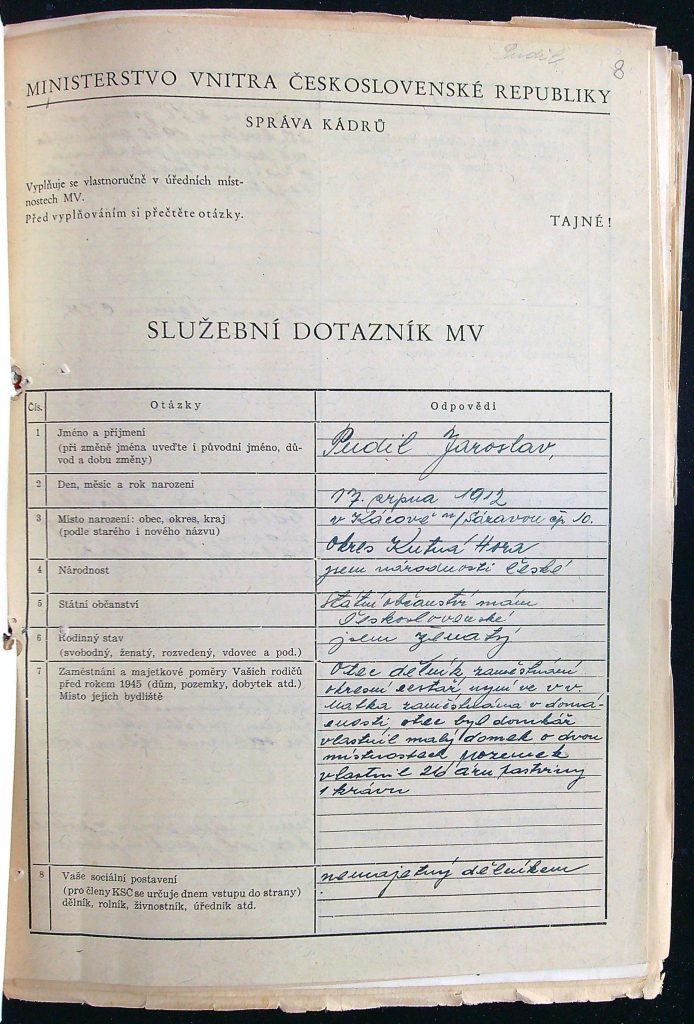 Pudil
8
MINISTERSTVO VNITRA ČESKOSLOVENSKÉ REPUBLIKY
SPRÁVA KÁDRŮ
Vyplňuje se vlastnoručně v úředních míst-
nostech MV.
Před vyplňováním si přečtěte otázky.
TAJNÉ!
SLUŽEBNÍ DOTAZNÍK MV
Čís. Otázky Odpovědi
1 Jméno a příjmení
(při změně jména uveďte i původní jméno, dů-
vod a dobu změny)
Pudil Jaroslav,
2 Den, měsíc a rok narození
17. srpna 1912
3 Místo narození: obec, okres, kraj
(podle starého i nového názvu)
v Kácově n/Sázavou čp 10.
Okres Kutná Hora
4 Národnost
jsem národnosti české
5 Státní občanství
Státní občanství mám
Československé
6 Rodinný stav
(svobodný, ženatý, rozvedený, vdovec a pod.)
jsem ženatý
7 Zaměstnání a majetkové poměry Vašich rodičů
před rokem 1945 (dům, pozemky, dobytek atd.)
Místo jejich bydliště
Otec dělník zaměstnání
okresní cestář, nyní ve v.v.
Matka zaměstnána v domá-
cnosti, otec byl domkář
vlastnil malý domek o dvou
místnostech pozemek
vlastnil 26 árů pastviny
1 krávu
8 Vaše sociální postavení
(pro členy KSČ se určuje dnem vstupu do strany)
dělník, rolník, živnostník, úředník atd.
nemajetný dělníkem